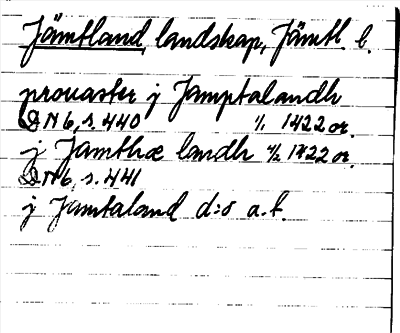 Jämtland, landskap, Jämtl. l.
prouaster j Jamptalandh
DN 6, s. 440 1/1 1422 or.
j Jamthæ landh 4/2 1422 or.
DN 6, s. 441
j Jamtaland d:o a.b.